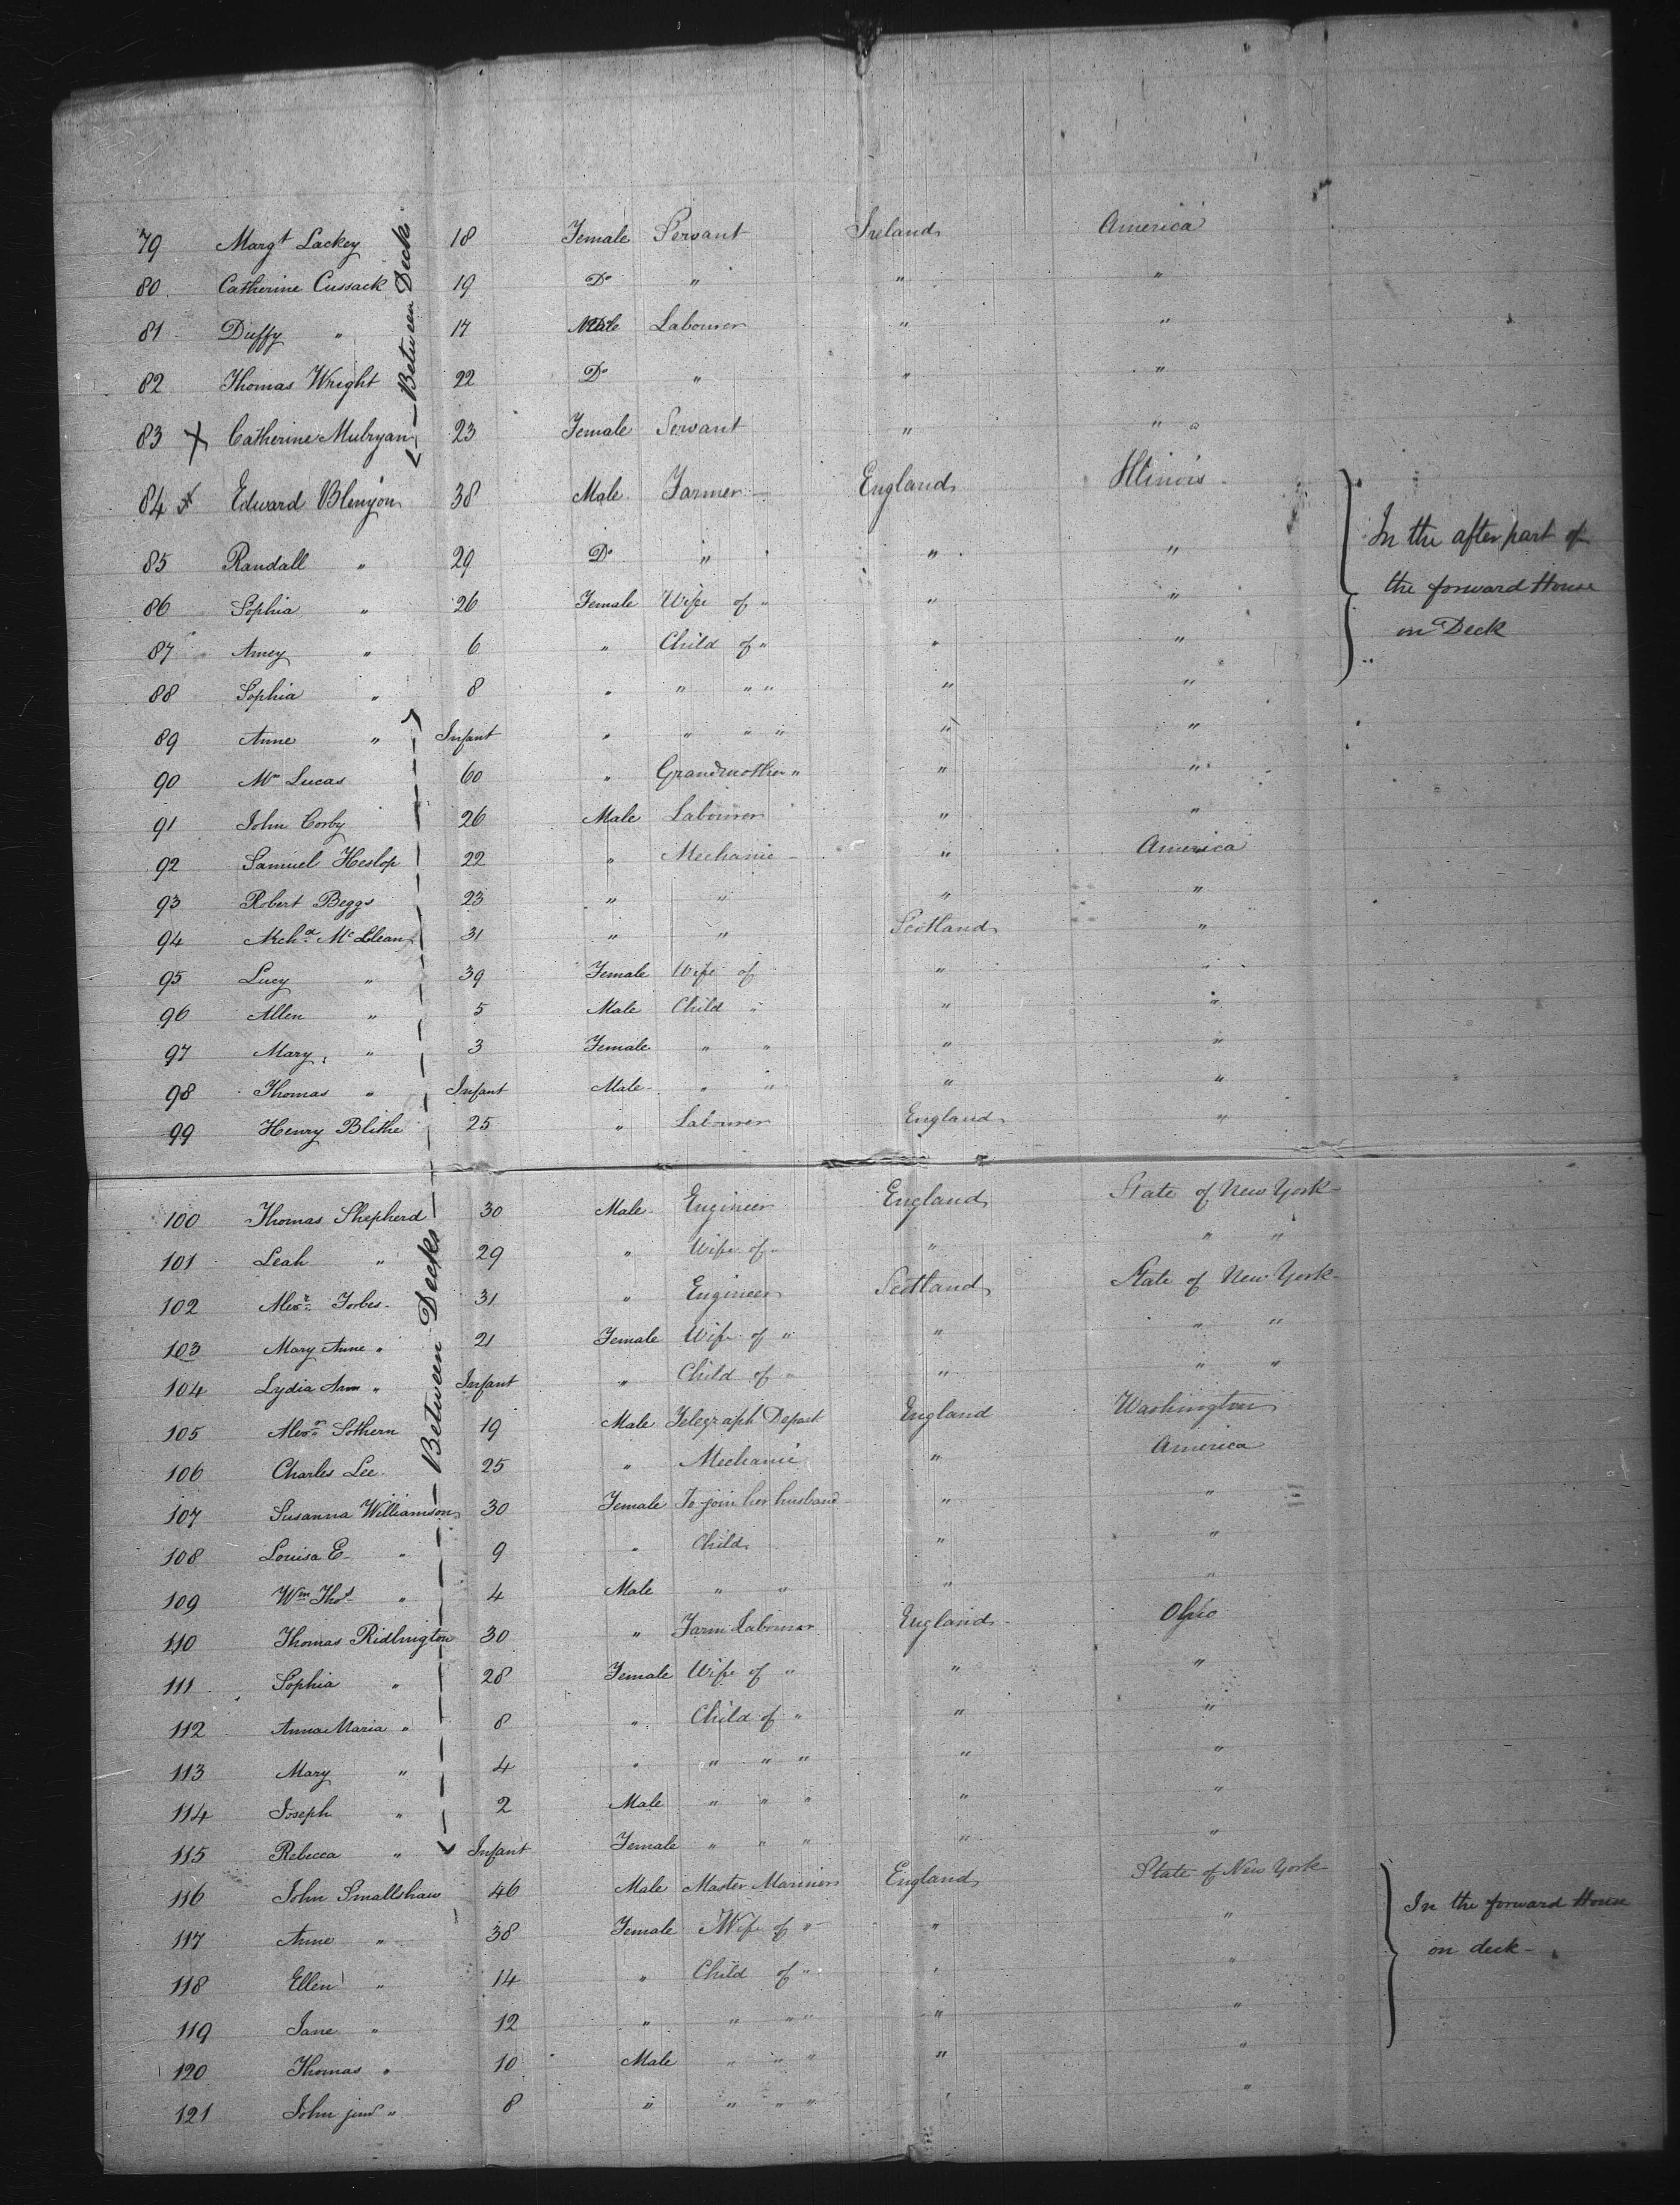 79 Margt Lackey 18 Female Servant Ireland America
80 Catherine Cussack 19 Do " " "
81 Duffy " 17 Male Labourer " "
82 Thomas Wright 22 Do " " "
83 X Catherine Mulryan 23 Female Servant " "
Between Decks
84 X Edward Blenyon 38 Male Farmer England Illinois
85 Randall " 29 Do " " "
86 Sophia " 26 Female Wife of " " "
87 Amey " 6 " Child of " " "
88 Sophia " 8 " " " " " "
In the after part of
the forward House
on Deck
89 Anne " Infant " " " " " "
90 Mrs Lucas 60 " Grandmother " " "
91 John Corby 26 Male Labourer " "
92 Samuel Heslop 22 " Mechanic " America
93 Robert Beggs 23 " " " "
94 Archd McLean 31 " " Scotland "
95 Lucy " 39 Female Wife of " "
96 Allen " 5 Male Child " " "
97 Mary " 3 Female " " " "
98 Thomas " Infant Male " " " "
99 Henry Blithe 25 " Labourer England "
100 Thomas Shepherd 30 Male Engineer England State of New York
101 Leah " 29 " Wife of " " " "
102 Alexr Forbes 31 " Engineer Scotland State of New York
103 Mary Anne " 21 Female Wife of " " " "
104 Lydia Ann " Infant " Child of " " " "
105 Alexr Sothern 19 Male Telegraph Depart England Washington
106 Charles Lee 25 " Mechanic " America
107 Susanna Williamson 30 Female To join her husband " "
108 Louisa E " 9 " Child " "
109 Wm Thos " 4 Male " " " "
110 Thomas Ridlington 30 " Farm Labourer England Ohio
111 Sophia " 28 Female Wife of " " "
112 Anna Maria " 8 " Child of " " "
113 Mary " 4 " " " " " "
114 Joseph " 2 Male " " " " "
115 Rebecca " Infant Female " " " " "
Between Decks
116 John Smallshaw 46 Male Master Mariner England State of New York
117 Anne " 38 Female Wife of " " "
118 Ellen " 14 " Child of " " "
119 Jane " 12 " " " " " "
120 Thomas " 10 Male " " " " "
121 John junr " 8 " " " " " "
In the forward House
on deck